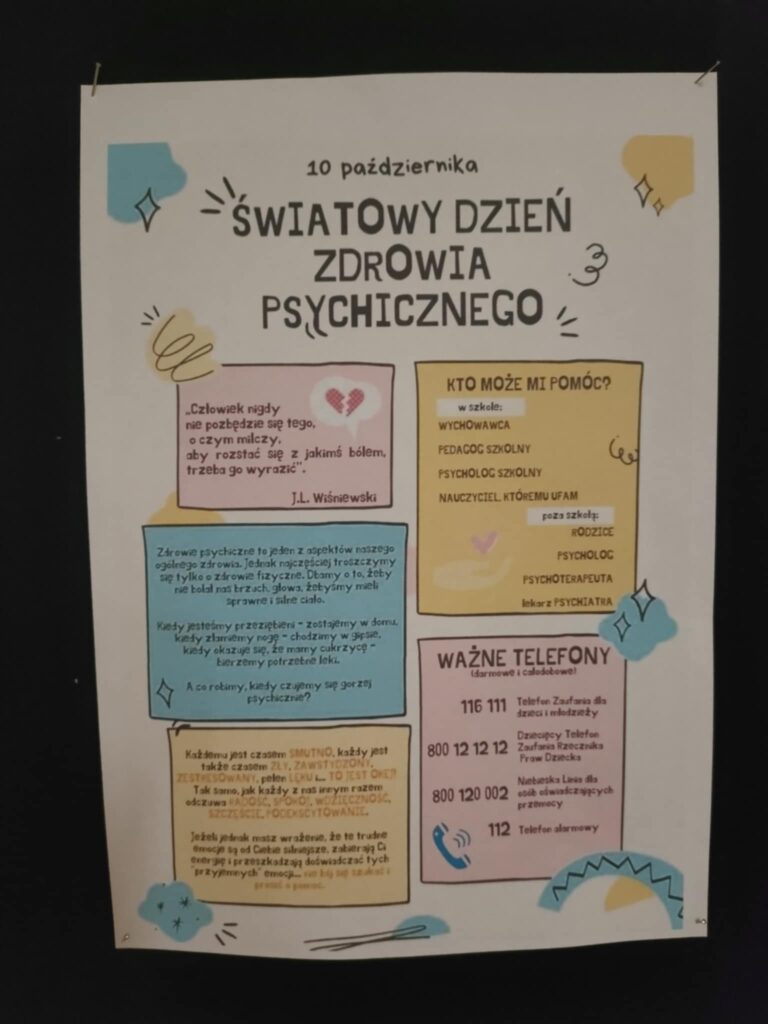 10 października
ŚWIATOWY DZIEŃ
ZDROWIA
PSYCHICZNEGO
„Człowiek nigdy
nie pozbędzie się tego,
o czym milczy,
aby rozstać się z jakimś bólem,
trzeba go wyrazić”.
J.L. Wiśniewski
KTO MOŻE MI POMÓC?
w szkole:
WYCHOWAWCA
PEDAGOG SZKOLNY
PSYCHOLOG SZKOLNY
NAUCZYCIEL, KTÓREMU UFAM
poza szkołą:
RODZICE
PSYCHOLOG
PSYCHOTERAPEUTA
lekarz PSYCHIATRA
Zdrowie psychiczne to jeden z aspektów naszego
ogólnego zdrowia. Jednak najczęściej troszczymy
się tylko o zdrowie fizyczne. Dbamy o to, żeby
nie bolał nas brzuch, głowa, żebyśmy mieli
sprawne i silne ciało.
Kiedy jesteśmy przeziębieni - zostajemy w domu,
kiedy złamiemy nogę - chodzimy w gipsie,
kiedy okazuje się, że mamy cukrzycę -
bierzemy potrzebne leki.
A co robimy, kiedy czujemy się gorzej
psychicznie?
WAŻNE TELEFONY
(darmowe i całodobowe)
116 111 Telefon Zaufania dla
dzieci i młodzieży
800 12 12 12 Dziecięcy Telefon
Zaufania Rzecznika
Praw Dziecka
800 120 002 Niebieska Linia dla
osób doświadczających
przemocy
112 Telefon alarmowy
Każdemu jest czasem SMUTNO, każdy jest
także czasem ZŁY, ZAWSTYDZONY,
ZESTRESOWANY, pełen LĘKU i... TO JEST OKEJ!
Tak samo, jak każdy z nas innym razem
odczuwa RADOŚĆ, SPOKÓJ, WDZIĘCZNOŚĆ,
SZCZĘŚCIE, PODEKSCYTOWANIE.
Jeżeli jednak masz wrażenie, że te trudne
emocje są od Ciebie silniejsze, zabierają Ci
energię i przeszkadzają doświadczać tych
"przyjemnych" emocji... nie bój się szukać i
prosić o pomoc.